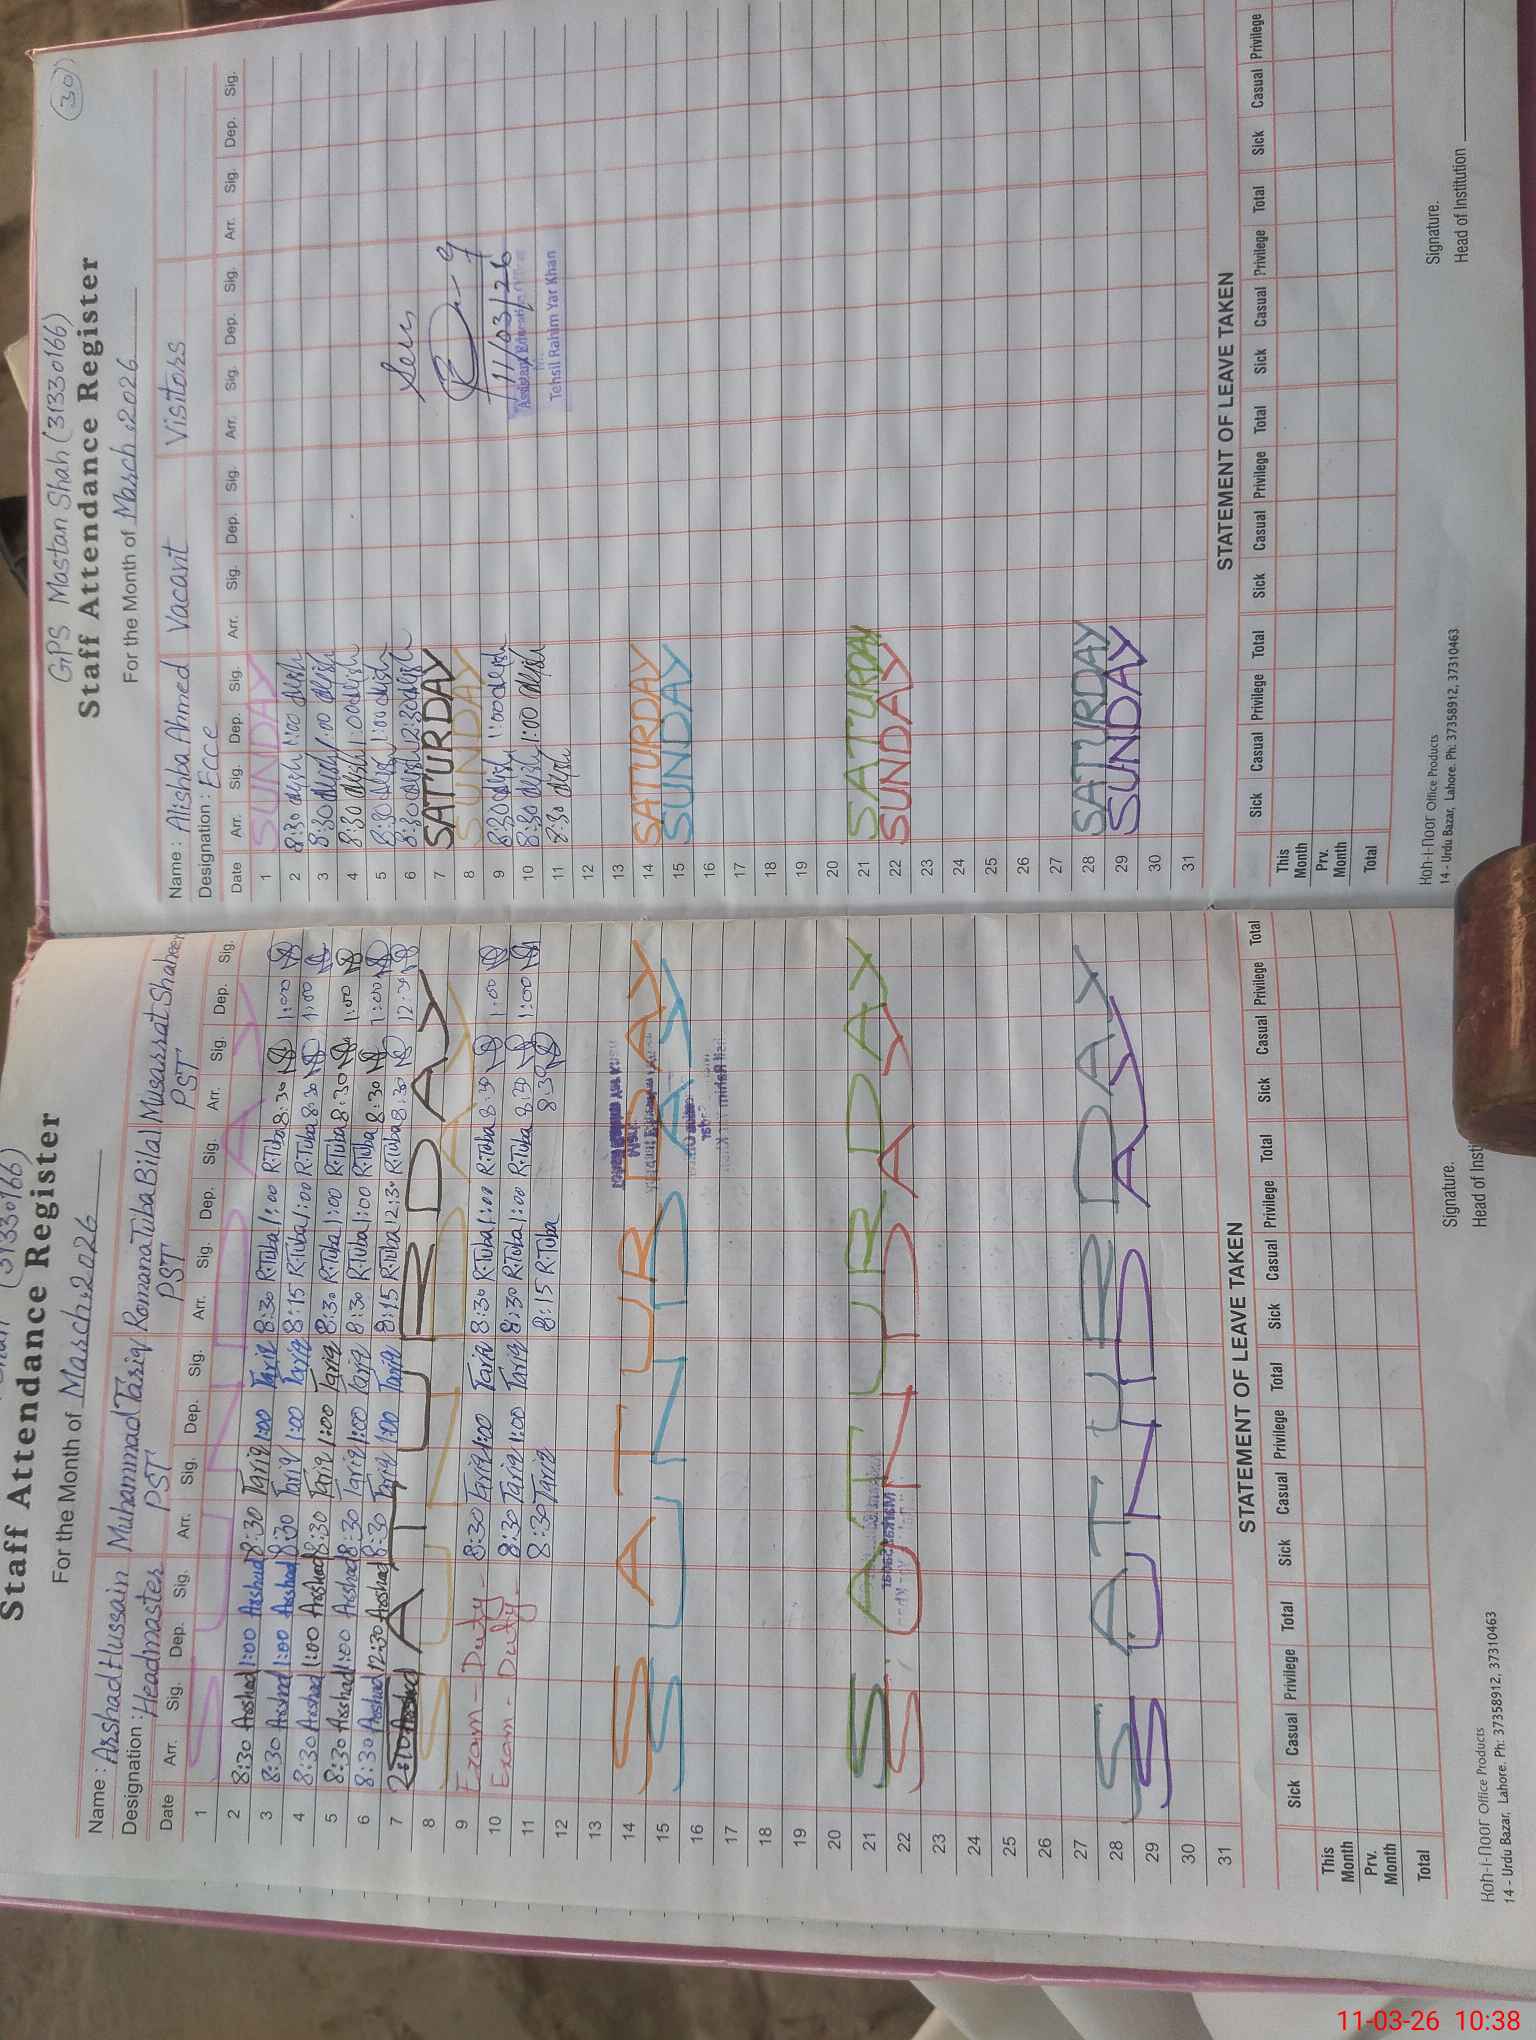 (31330166)
Staff Attendance Register
For the Month of March,2026
Name : Arshad Hussain Muhammad Tariq Romana Tuba Bilal Musarrat Shaheen
Designation : Headmaster PST PST PST
Date Arr. Sig. Dep. Sig. Arr. Sig. Dep. Sig. Arr. Sig. Dep. Sig. Arr. Sig. Dep. Sig.
1 SUNDAY
2 8:30 Arshad 1:00 Arshad 8:30 Tariq 1:00 Tariq 8:30 R.Tuba 1:00 R.Tuba 8:30 1:00
3 8:30 Arshad 1:00 Arshad 8:30 Tariq 1:00 Tariq 8:15 R.Tuba 1:00 R.Tuba 8:30 1:00
4 8:30 Arshad 1:00 Arshad 8:30 Tariq 1:00 Tariq 8:30 R.Tuba 1:00 R.Tuba 8:30 1:00
5 8:30 Arshad 1:00 Arshad 8:30 Tariq 1:00 Tariq 8:30 R.Tuba 1:00 R.Tuba 8:30 1:00
6 8:30 Arshad 12:30 Arshad 8:30 Tariq 1:00 Tariq 8:15 R.Tuba 12:30 R.Tuba 8:30 12:30
7 SATURDAY
8 SUNDAY
9 Exam - Duty - 8:30 Tariq 1:00 Tariq 8:30 R.Tuba 1:00 R.Tuba 8:30 1:00
10 Exam - Duty - 8:30 Tariq 1:00 Tariq 8:30 R.Tuba 1:00 R.Tuba 8:30 1:00
11 8:30 Tariq 8:15 R.Tuba 8:30
12
13
14 SATURDAY
15 SUNDAY
16
17
18
19
20
21 SATURDAY
22 SUNDAY
23
24
25
26
27
28 SATURDAY
29 SUNDAY
30
31
STATEMENT OF LEAVE TAKEN
Sick Casual Privilege Total Sick Casual Privilege Total Sick Casual Privilege Total Sick Casual Privilege Total
This Month
Prv. Month
Total
Signature.
Head of Insti
Koh-i-Noor Office Products
14 - Urdu Bazar, Lahore. Ph: 37358912, 37310463
GPS Mastan Shah (31330166)
(30)
Staff Attendance Register
For the Month of March,2026
Name : Alishba Ahmed Vacant Visitors
Designation : Ecce
Date Arr. Sig. Dep. Sig. Arr. Sig. Dep. Sig. Arr. Sig. Dep. Sig. Arr. Sig. Dep. Sig.
1 SUNDAY
2 8:30 Alish 1:00 Alish
3 8:30 Alish 1:00 Alish
4 8:30 Alish 1:00 Alish
5 8:30 Alish 1:00 Alish
6 8:30 Alish 12:30 Alish
7 SATURDAY
8 SUNDAY
9 8:30 Alish 1:00 Alish
10 8:30 Alish 1:00 Alish
11 8:30 Alish
12
13
14 SATURDAY
15 SUNDAY
16
17
18
19
20
21 SATURDAY
22 SUNDAY
23
24
25
26
27
28 SATURDAY
29 SUNDAY
30
31
Seen
11/03/26
Assistant Education
Tehsil Rahim Yar Khan
STATEMENT OF LEAVE TAKEN
Sick Casual Privilege Total Sick Casual Privilege Total Sick Casual Privilege Total Sick Casual Privilege
This Month
Prv. Month
Total
Signature.
Head of Institution
Koh-i-Noor Office Products
14 - Urdu Bazar, Lahore. Ph: 37358912, 37310463
11-03-26 10:38